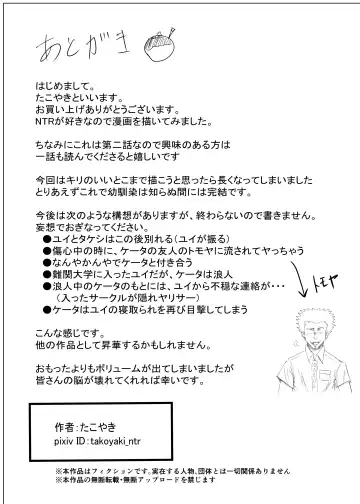 あとがき
はじめまして。
たこやきといいます。
お買い上げありがとうございます。
NTRが好きなので漫画を描いてみました。
ちなみにこれは第二話なので興味のある方は
一話も読んでくださると嬉しいです
今回はキリのいいとこまで描こうと思ったら長くなってしまいました
とりあえずこれで幼馴染は知らぬ間には完結です。
今後は次のような構想がありますが、終わらないので書きません。
妄想でおぎなってください。
●ユイとタケシはこの後別れる（ユイが振る）
●傷心中の時に、ケータの友人のトモヤに流されてヤっちゃう
●なんやかんやでケータと付き合う
●難関大学に入ったユイだが、ケータは浪人
●浪人中のケータのもとには、ユイから不穏な連絡が・・・
（入ったサークルが隠れヤリサー）
●ケータはユイの寝取られを再び目撃してしまう
トモヤ
こんな感じです。
他の作品として昇華するかもしれません。
おもったよりもボリュームが出てしまいましたが
皆さんの脳が壊れてくれれば幸いです。
作者：たこやき
pixiv ID：takoyaki_ntr
※本作品はフィクションです。実在する人物、団体とは一切関係ありません
※本作品の無断転載・無断アップロードを禁じます